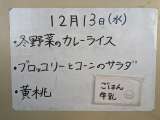 12月13日(水)
・冬野菜のカレーライス
・ブロッコリーとコーンのサラダ
・黄桃
ごはん
牛乳